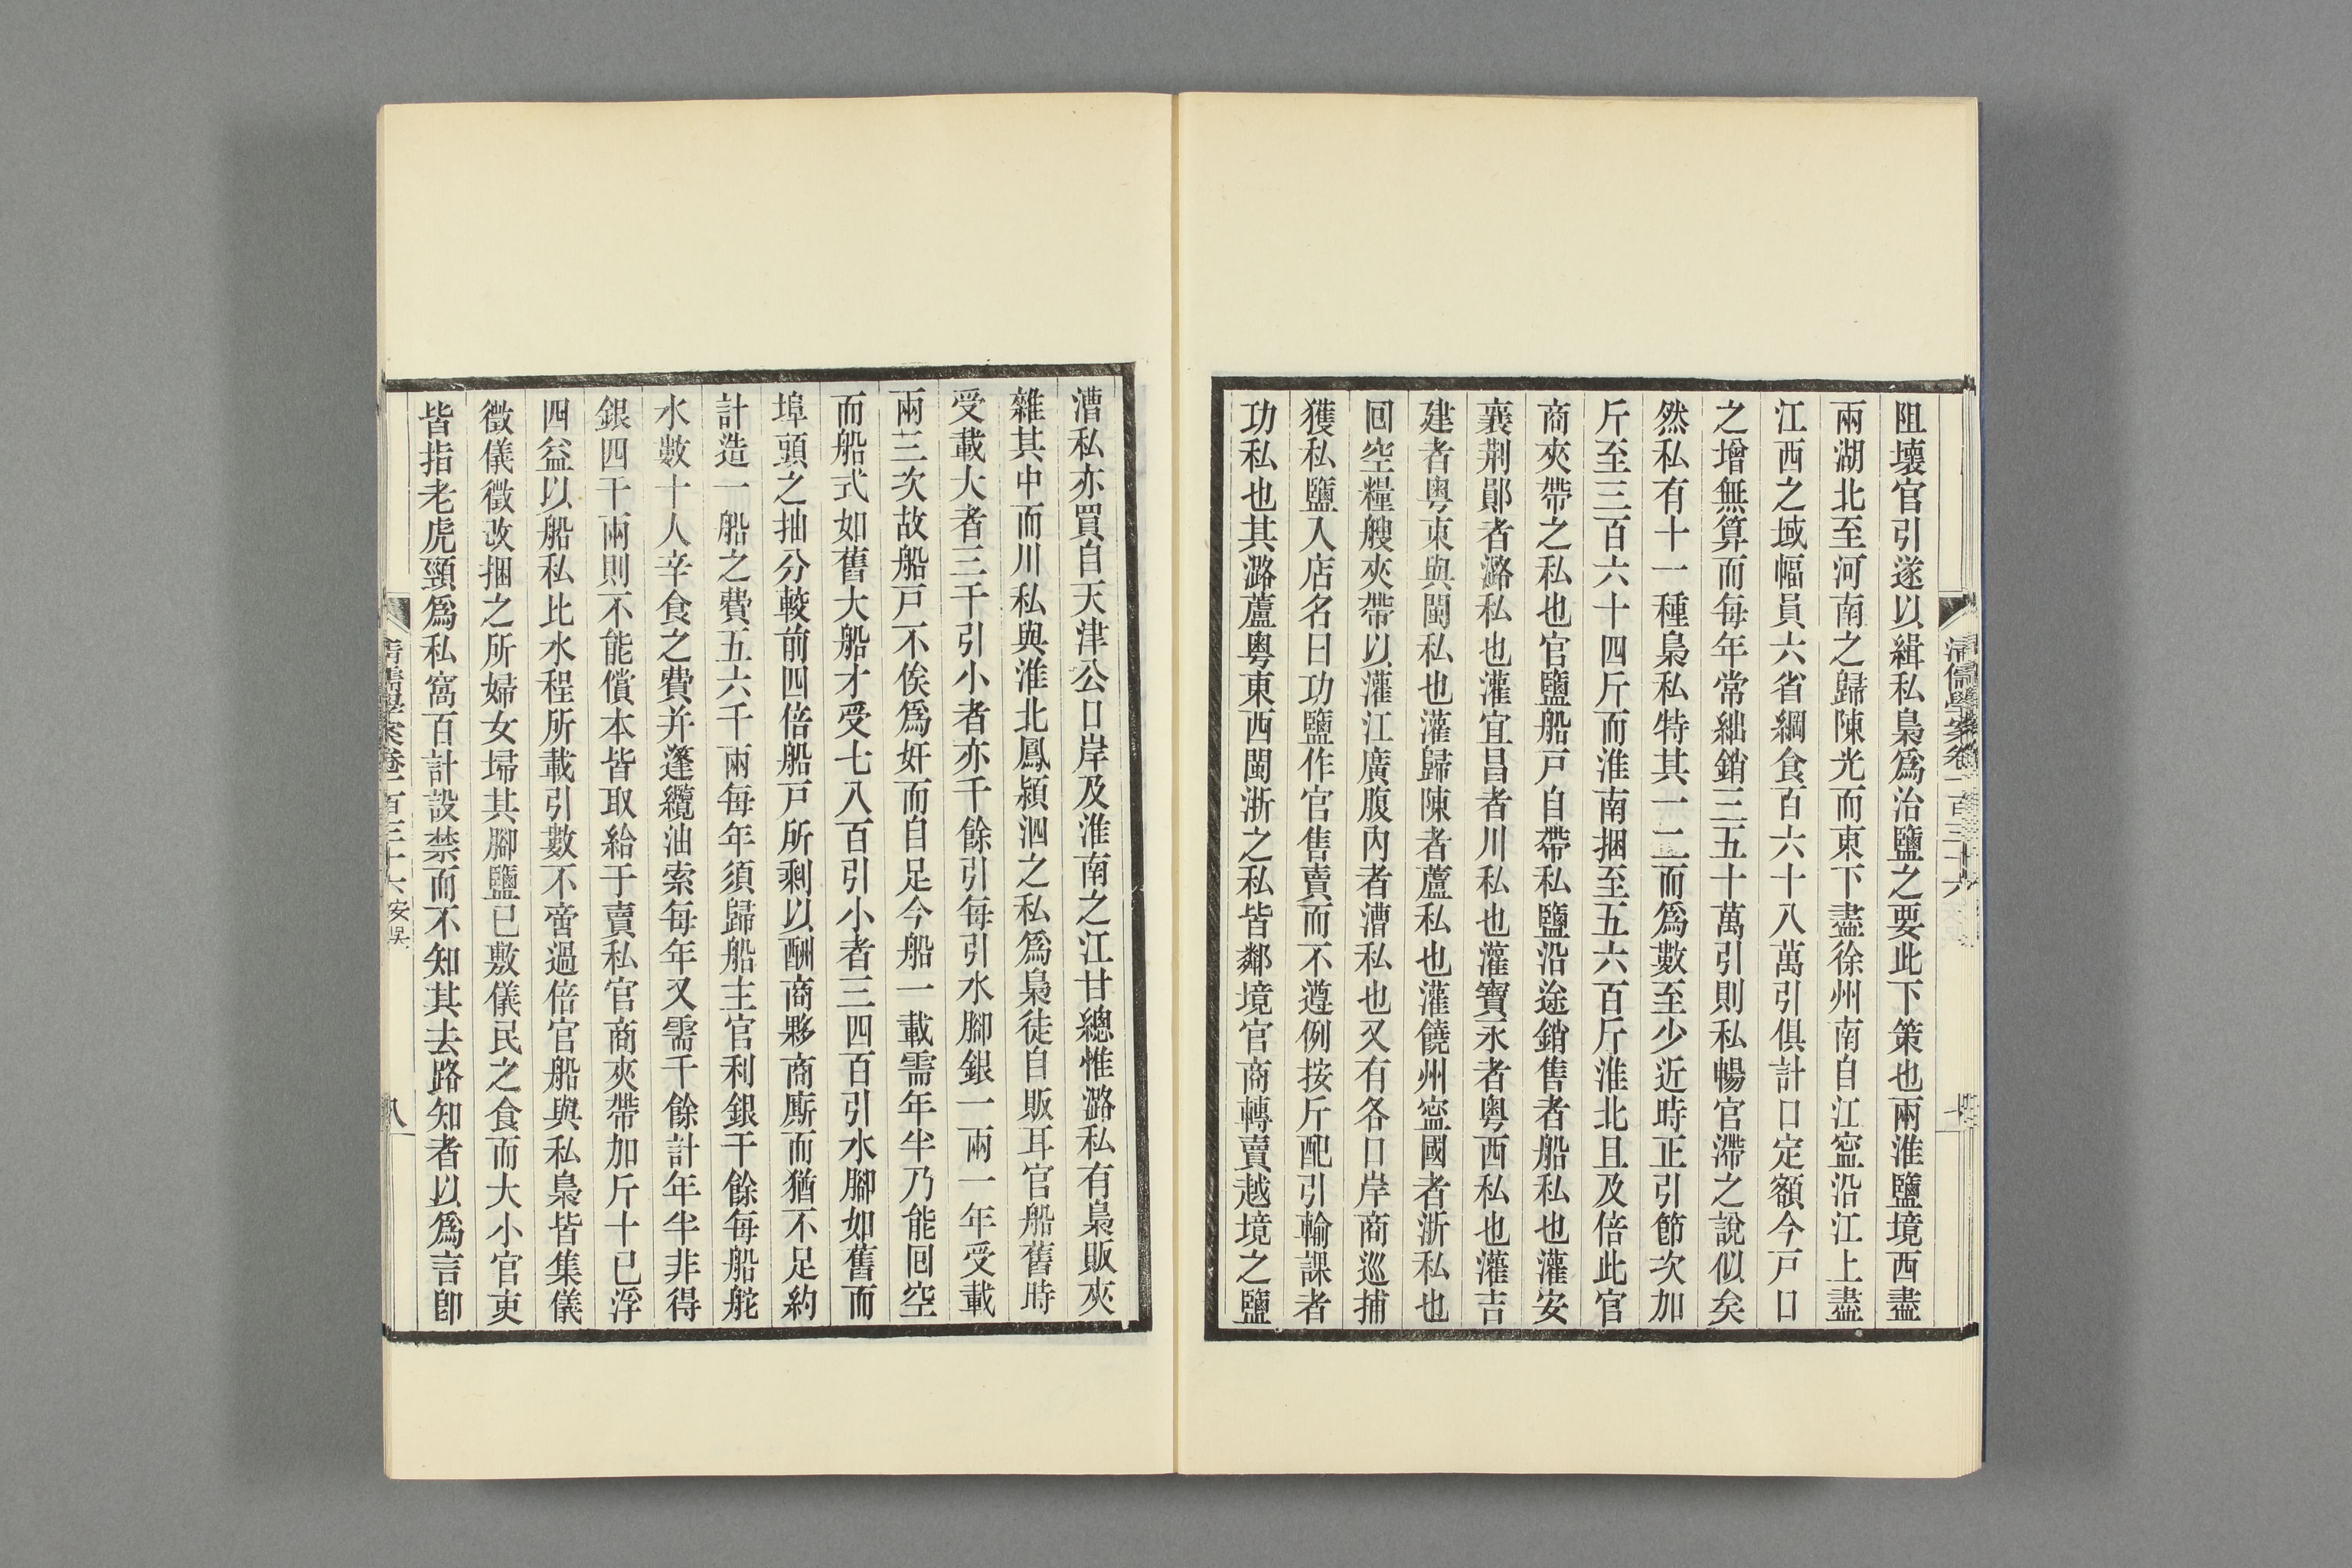 阻壞官引遂以緝私梟爲治鹽之要此下策也兩淮鹽境西盡
兩湖北至河南之歸陳光而東下盡徐州南自江寍沿江上盡
江西之域幅員六省綱食百六十八萬引俱計口定額今戸口
之增無算而每年常絀銷三五十萬引則私暢官滯之說似矣
然私有十一種梟私特其一二而爲數至少近時正引節次加
斤至三百六十四斤而淮南捆至五六百斤淮北且及倍此官
商夾帶之私也官鹽船戸自帶私鹽沿途銷售者船私也灌安
襄荆鄖者潞私也灌宜昌者川私也灌寶永者粵西私也灌吉
建者粵東與閩私也灌歸陳者蘆私也灌饒州寍國者浙私也
回空糧艘夾帶以灌江廣腹內者漕私也又有各口岸商巡捕
獲私鹽入店名曰功鹽作官售賣而不遵例按斤配引輸課者
功私也其潞蘆粵東西閩浙之私皆鄰境官商轉賣越境之鹽
清儒學案卷一百三十六
漕私亦買自天津公口岸及淮南之江甘總惟潞私有梟販夾
雜其中而川私與淮北鳳潁泗之私爲梟徒自販耳官船舊時
受載大者三千引小者亦千餘引每引水腳銀一兩一年受載
兩三次故船戸不俟爲奸而自足今船一載需年半乃能回空
而船式如舊大船才受七八百引小者三四百引水腳如舊而
埠頭之抽分較前四倍船戸所剩以酬商夥商廝而猶不足約
計造一船之費五六千兩每年須歸船主官利銀千餘每船舵
水數十人辛食之費并篷纜油索每年又需千餘計年半非得
銀四千兩則不能償本皆取給于賣私官商夾帶加斤十已浮
四益以船私比水程所載引數不啻過倍官船與私梟皆集儀
徵儀徵改捆之所婦女埽其腳鹽已敷儀民之食而大小官吏
皆指老虎頸爲私窩百計設禁而不知其去路知者以爲言卽
清儒學案卷一百三十六 安吳
八